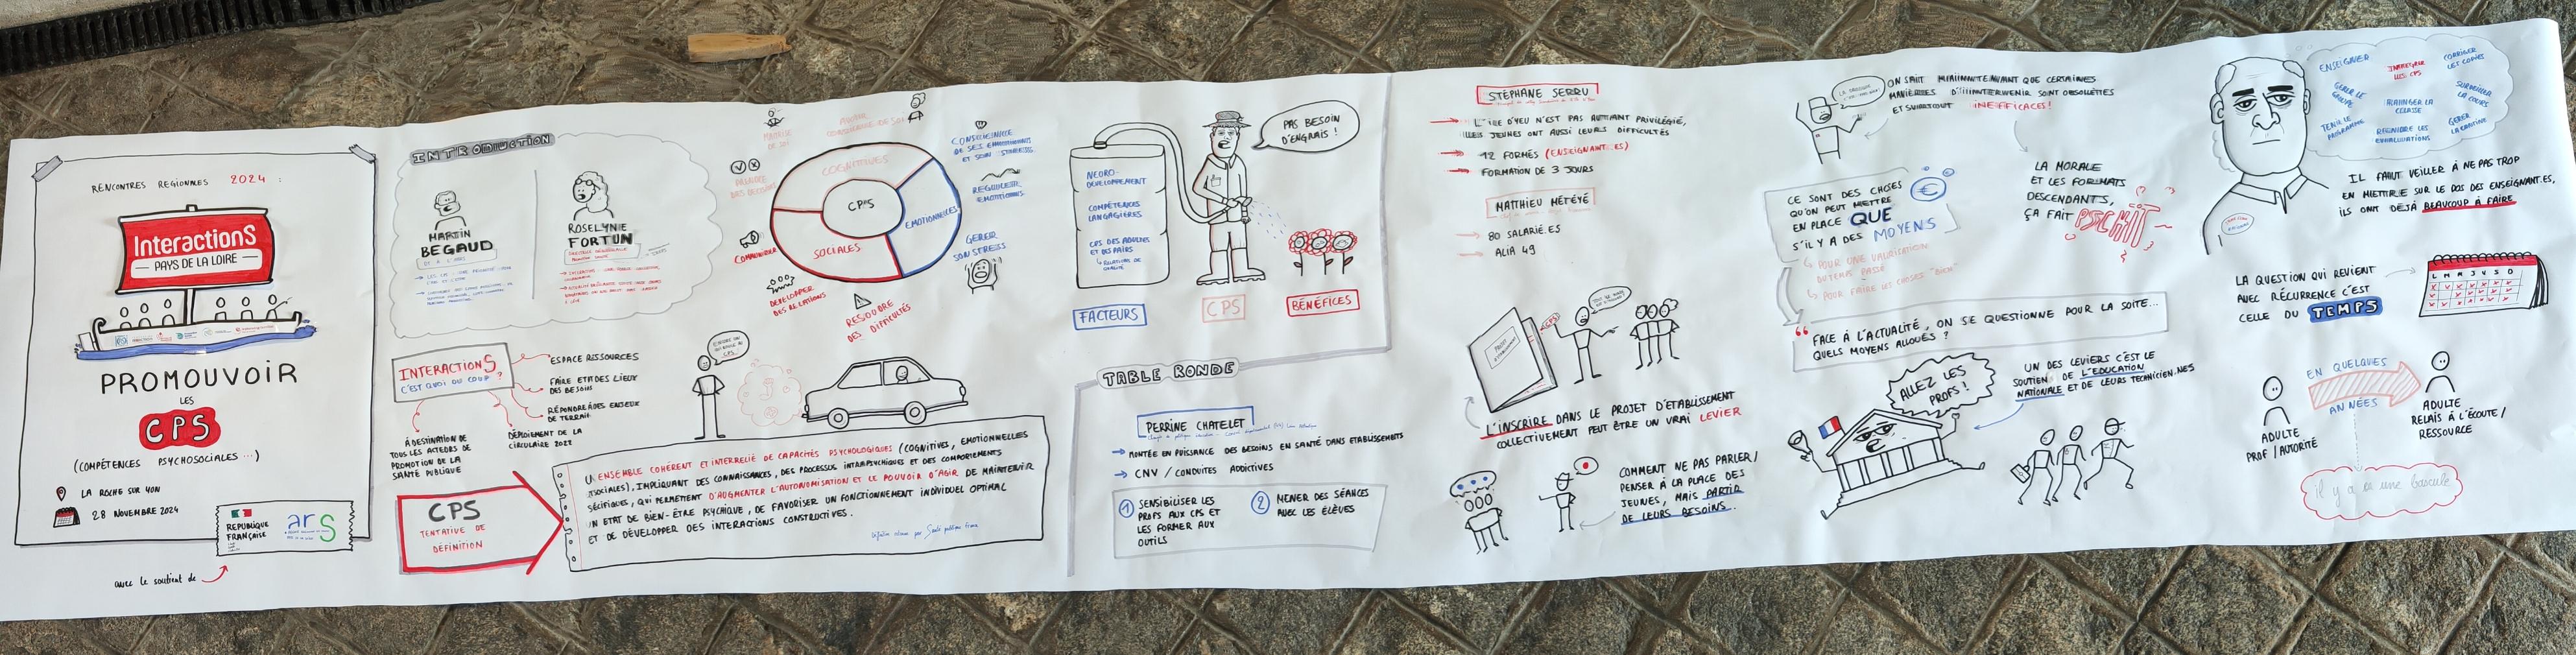 RENCONTRES REGIONALES 2024 :
InteractionS
PAYS DE LA LOIRE
PROMOUVOIR
LES
CPS
(COMPÉTENCES PSYCHOSOCIALES ...)
LA ROCHE SUR YON
28 NOVEMBRE 2024
REPUBLIQUE
FRANÇAISE
ars
avec le soutien de
INTRODUCTION
MARTIN
BEGAUD
ROSELYNE
FORTUN
INTERACTIONS
C'EST QUOI DU COUP ?
ESPACE RESSOURCES
FAIRE ETAT DES LIEUX
DES BESOINS
RÉPONDRE À DES ENJEUX
DE TERRAIN
DÉPLOIEMENT DE LA
CIRCULAIRE 2022
À DESTINATION DE
TOUS LES ACTEURS DE
PROMOTION DE LA
SANTÉ PUBLIQUE
CPS
TENTATIVE DE
DÉFINITION
UN ENSEMBLE COHÉRENT ET INTERRELIÉ DE CAPACITÉS PSYCHOLOGIQUES (COGNITIVES, EMOTIONNELLES
SOCIALES), IMPLIQUANT DES CONNAISSANCES, DES PROCESSUS INTRAPSYCHIQUES ET DES COMPORTEMENTS
SPÉCIFIQUES, QUI PERMETTENT D'AUGMENTER L'AUTONOMISATION ET LE POUVOIR D'AGIR DE MAINTENIR
UN ETAT DE BIEN-ÊTRE PSYCHIQUE, DE FAVORISER UN FONCTIONNEMENT INDIVIDUEL OPTIMAL
ET DE DÉVELOPPER DES INTERACTIONS CONSTRUCTIVES.
CPS
COGNITIVES
EMOTIONNELLES
SOCIALES
MAITRISE
DE SOI
AVOIR
CONSCIENCE DE SOI
PRENDRE
DES DÉCISIONS
CONSCIENCE
DE SES EMOTIONS
ET SON STRESS
REGULER SES
EMOTIONS
GERER
SON STRESS
COMMUNIQUER
DEVELOPPER
DES RELATIONS
RESOUDRE
DES DIFFICULTÉS
NEURO-
DEVELOPPEMENT
COMPÉTENCES
LANGAGIÈRES
CPS DES ADULTES
ET DES PAIRS
RELATIONS DE
QUALITÉ
PAS BESOIN
D'ENGRAIS !
FACTEURS
CPS
BÉNÉFICES
TABLE RONDE
PERRINE CHATELET
MONTÉE EN PUISSANCE DES BESOINS EN SANTÉ DANS ETABLISSEMENTS
CNV / CONDUITES ADDICTIVES
1 SENSIBILISER LES
PROFS AUX CPS ET
LES FORMER AUX
OUTILS
2 MENER DES SÉANCES
AVEC LES ÉLÈVES
STÉPHANE SERRU
L'ILE D'YEU N'EST PAS AUTANT PRIVILÉGIÉ,
LES JEUNES ONT AUSSI LEURS DIFFICULTÉS
12 FORMÉS (ENSEIGNANT.ES)
FORMATION DE 3 JOURS
MATTHIEU MÉTÉYÉ
80 SALARIÉ.ES
ALIA 49
PROJET
D'ETABLISSEMENT
CPS
L'INSCRIRE DANS LE PROJET D'ETABLISSEMENT
COLLECTIVEMENT PEUT ÊTRE UN VRAI LEVIER
COMMENT NE PAS PARLER/
PENSER À LA PLACE DES
JEUNES, MAIS PARTIR
DE LEURS BESOINS.
ON SAIT MAINTENANT QUE CERTAINES
MANIÈRES D'INTERVENIR SONT OBSOLÈTES
ET SURTOUT INEFFICACES !
LA MORALE
ET LES FORMATS
DESCENDANTS,
ÇA FAIT PSCHIT
CE SONT DES CHOSES
QU'ON PEUT METTRE
EN PLACE QUE
S'IL Y A DES MOYENS
€
POUR UNE VALORISATION
DU TEMPS PASSÉ
POUR FAIRE LES CHOSES "BIEN"
“ FACE À L'ACTUALITÉ, ON SE QUESTIONNE POUR LA SUITE...
QUELS MOYENS ALLOUÉS ?
ALLEZ LES
PROFS !
UN DES LEVIERS C'EST LE
SOUTIEN DE L'EDUCATION
NATIONALE ET DE LEURS TECHNICIEN.NES
ENSEIGNER
INTÉGRER
LES CPS
CORRIGER
LES COPIES
GERER LE
GROUPE
RANGER LA
CLASSE
SURVEILLER
LA COUR
TENIR LE
PROGRAMME
REPRENDRE LES
EVALUATIONS
GÉRER
LA CANTINE
IL FAUT VEILLER À NE PAS TROP
EN METTRE SUR LE DOS DES ENSEIGNANT.ES,
ILS ONT DÉJÀ BEAUCOUP À FAIRE
LA QUESTION QUI REVIENT
AVEC RÉCURRENCE C'EST
CELLE DU TEMPS
L M M J V S D
EN QUELQUES
ANNÉES
ADULTE
PROF / AUTORITÉ
ADULTE
RELAIS À L'ÉCOUTE /
RESSOURCE
il y a eu une bascule